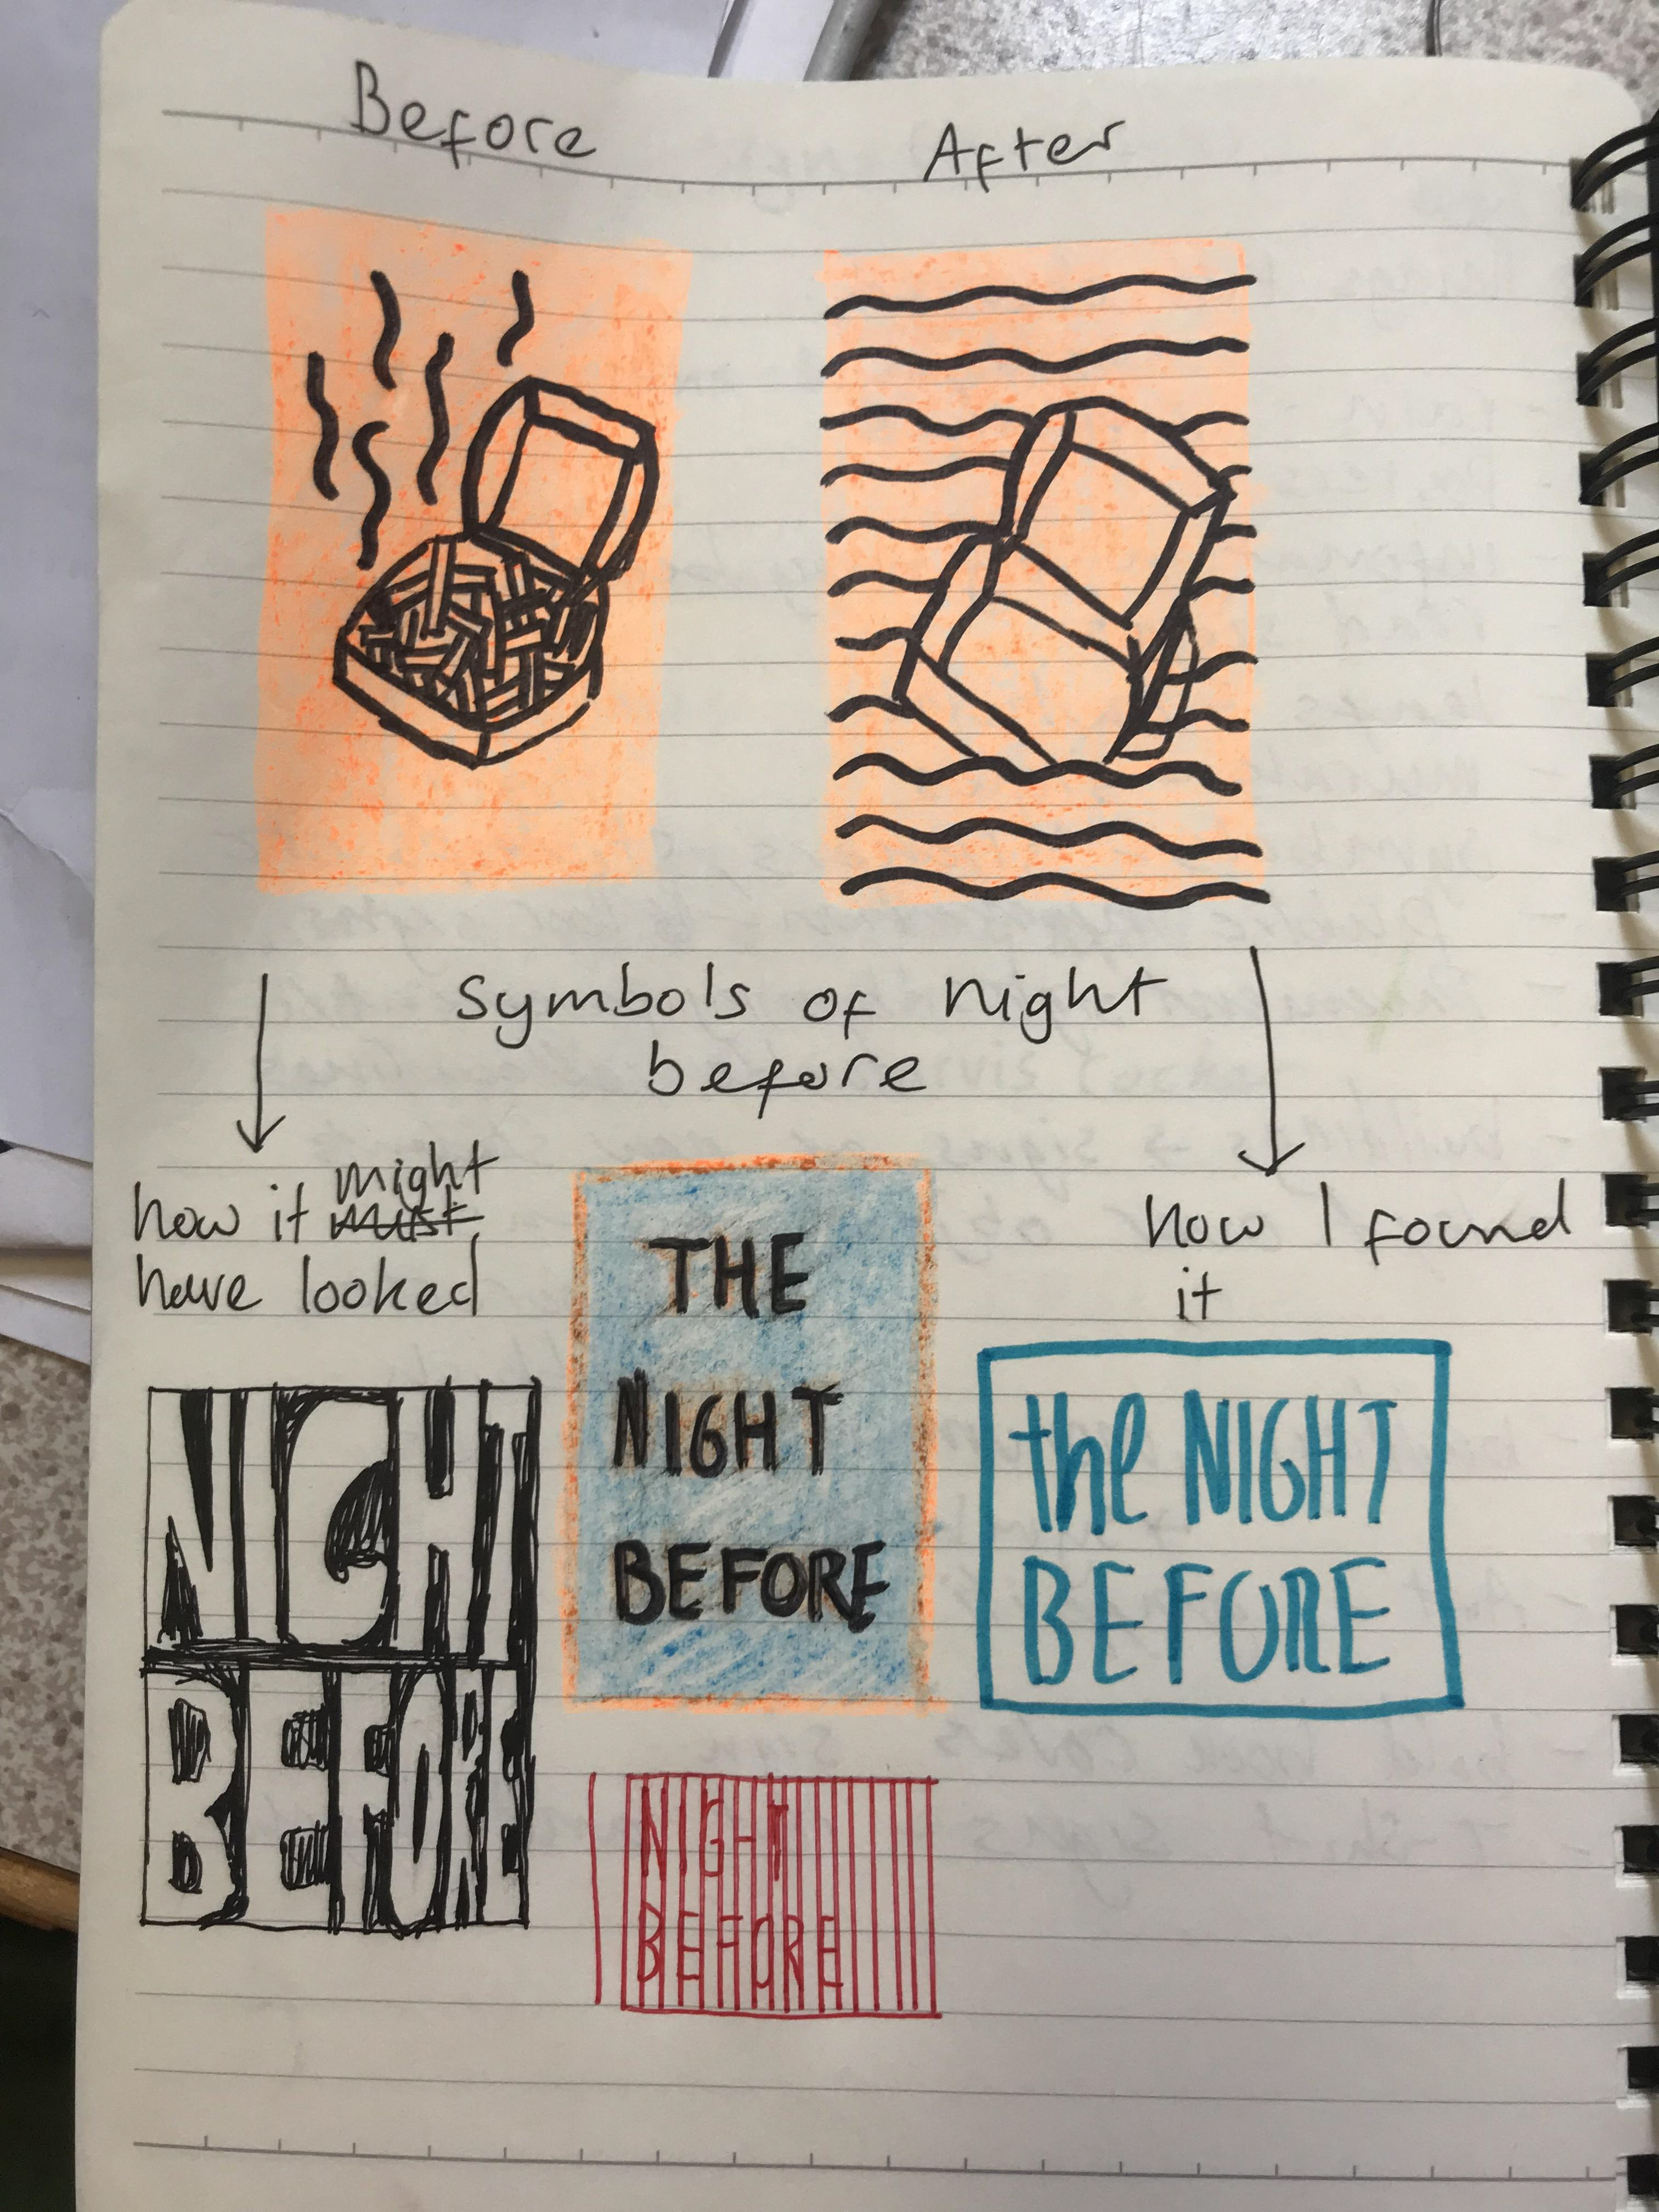 Before
After
Symbols of night
before
how it might
must
have looked
how I found
it
THE
NIGHT
BEFORE
the NIGHT
BEFORE
NIGHT
BEFORE
NIGHT
BEFORE